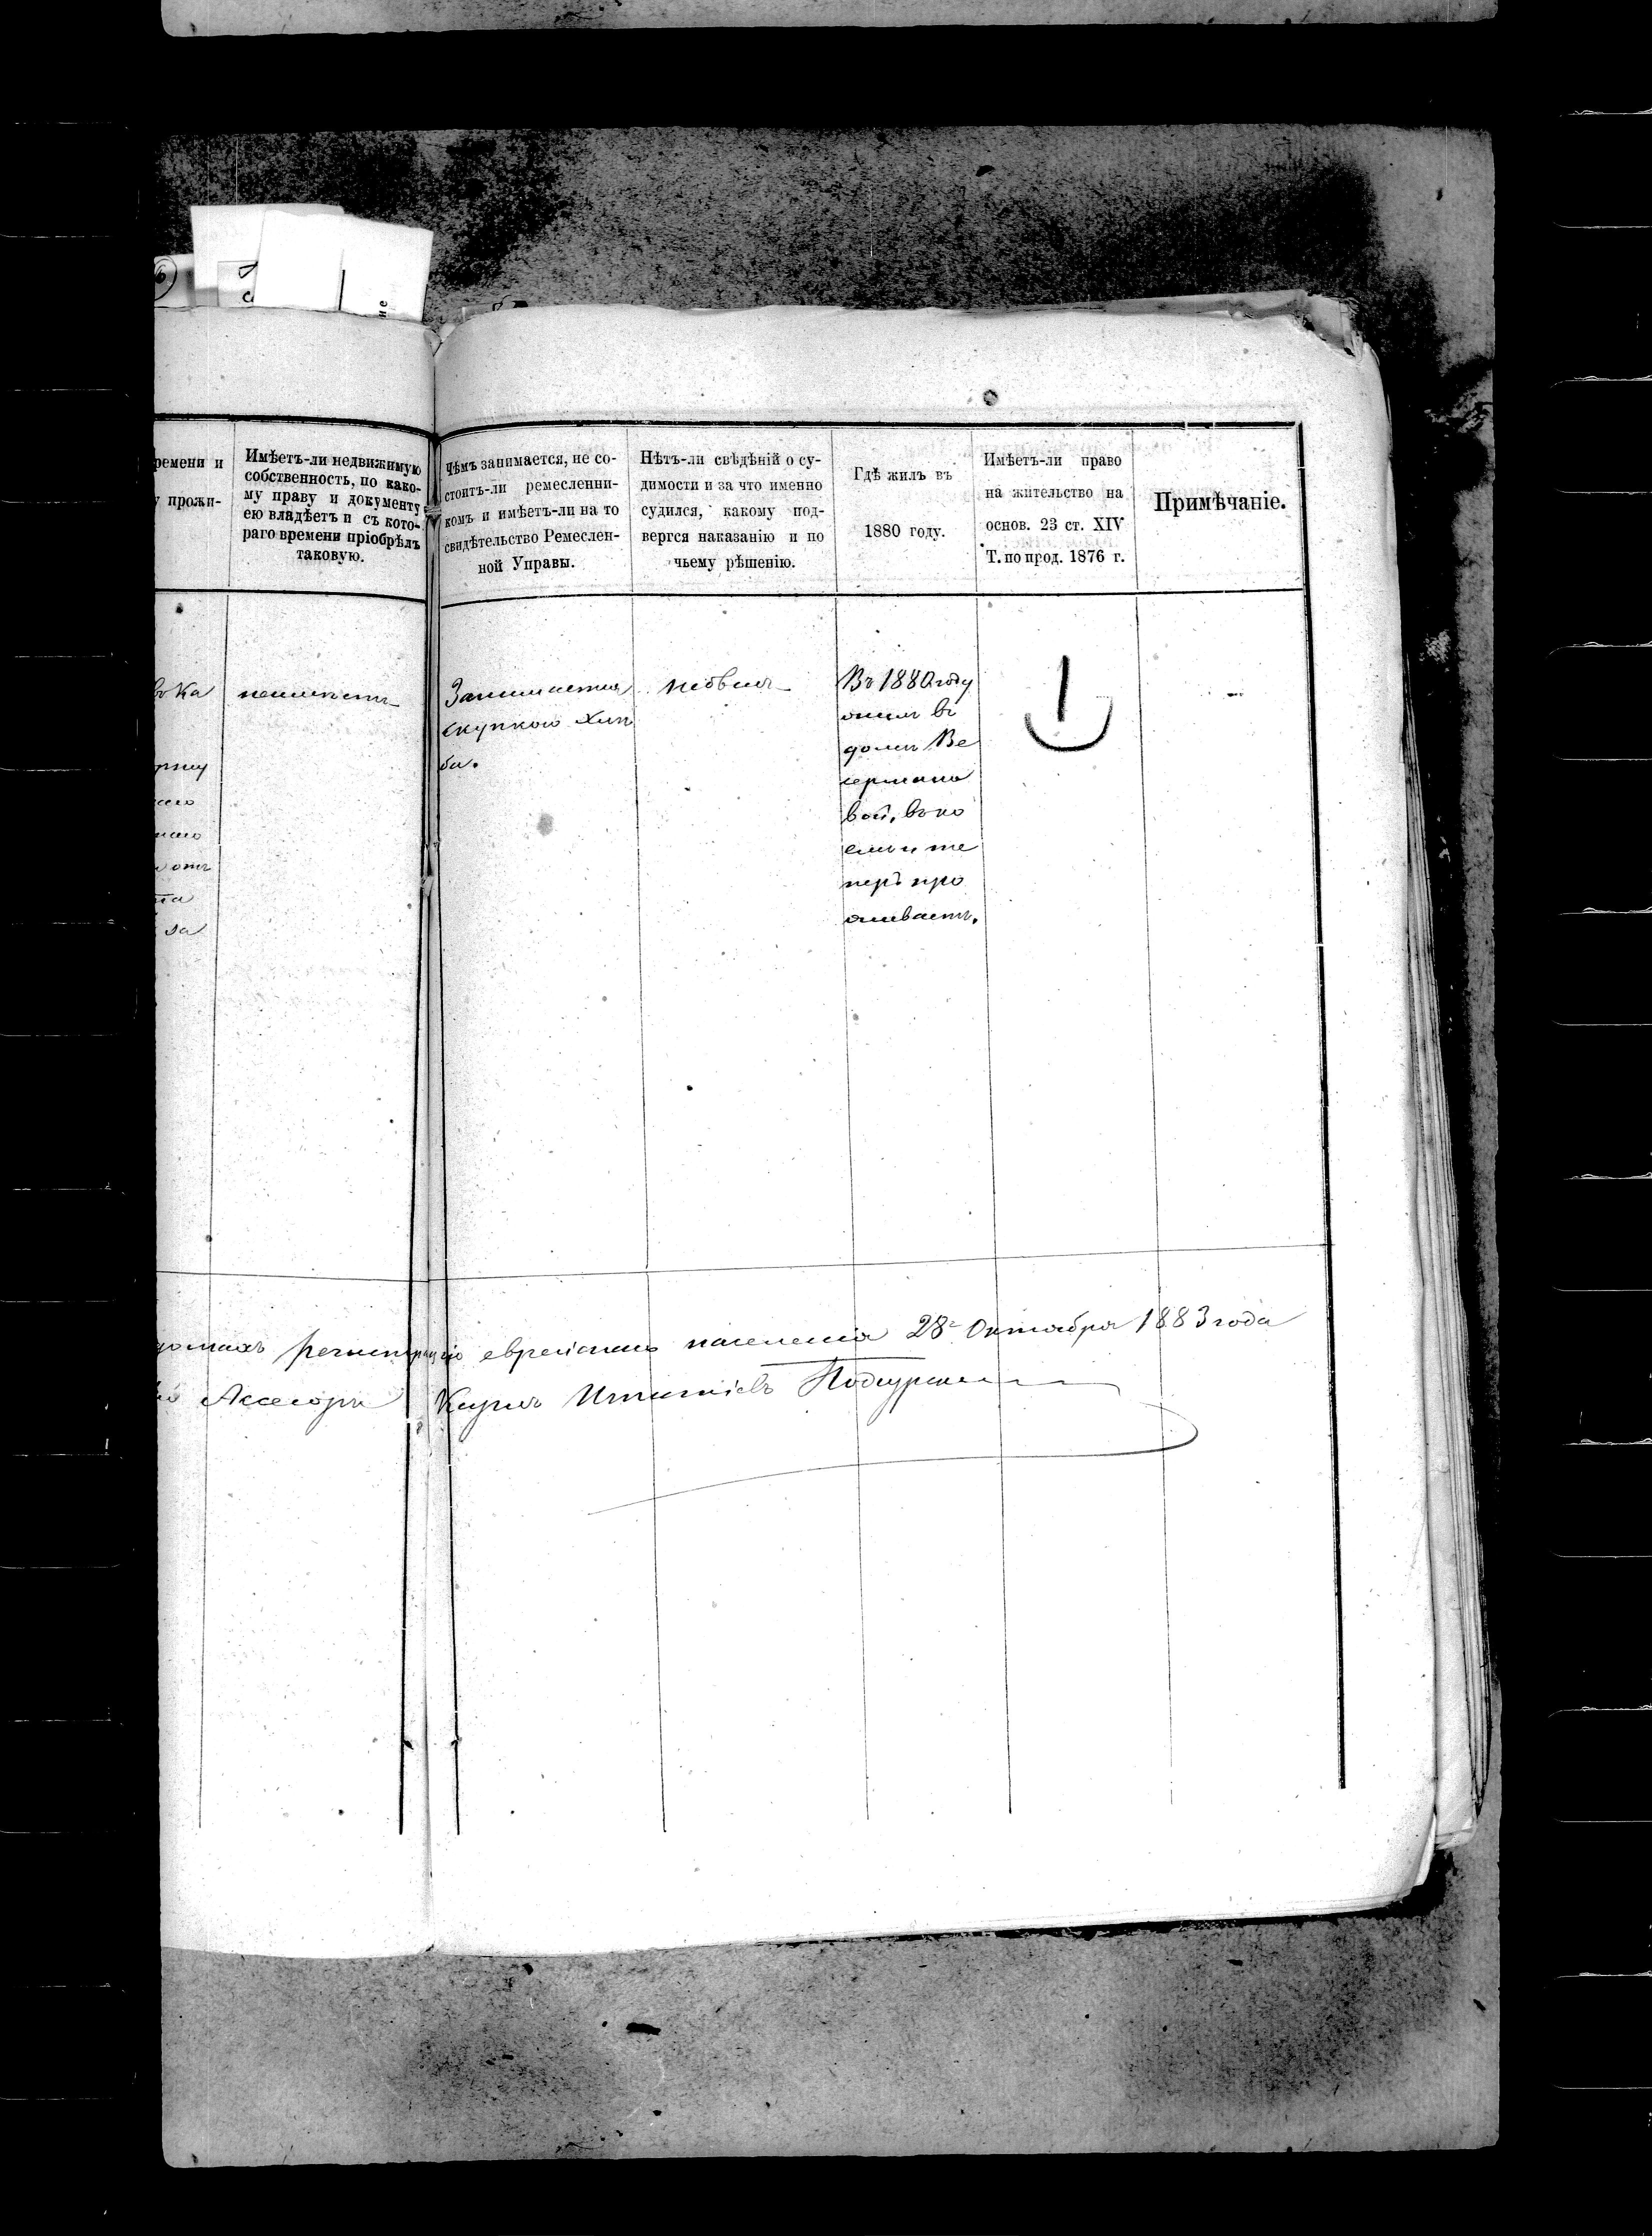 ремени и
у прожи-
Имѣетъ-ли недвижимую
собственность, по како-
му праву и документу
ею владѣетъ и съ кото-
раго времени пріобрѣлъ
таковую.
Чѣмъ занимается, не со-
стоитъ-ли ремесленни-
комъ и имѣетъ-ли на то
свидѣтельство Ремеслен-
ной Управы.
Нѣтъ-ли свѣдѣній о су-
димости и за что именно
судился, какому под-
вергся наказанію и по
чьему рѣшенію.
Гдѣ жилъ въ
1880 году.
Имѣетъ-ли право
на жительство на
основ. 23 ст. XIV
Т. по прод. 1876 г.
Примѣчаніе.
неимѣетъ
Занимается
скупкою хлѣ
ба.
Въ 1880 году
жилъ въ
домѣ Ве
сермано
вой, въ ко
емъ и те
перь про
живаетъ.
отъ
за
еврейскаго населенія 28 Октября 1883 года
Асесоръ